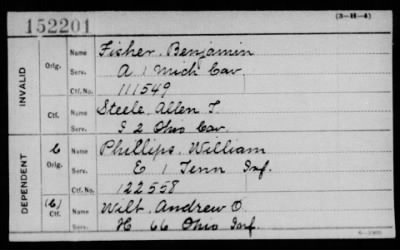 152201
(3-H-4)
INVALID
Orig.
Name Fisher, Benjamin
Serv. A 1 Mich Cav.
Ctf. No. 111549
Ctf.
Name Steele, Allen T
Serv. I 2 Ohio Cav.
DEPENDENT
C
Orig.
Name Phillips, William
Serv. E 1 Tenn Inf.
Ctf. No. 122558
(C)
Ctf.
Name Wilt, Andrew O
Serv. H 66 Ohio Inf.